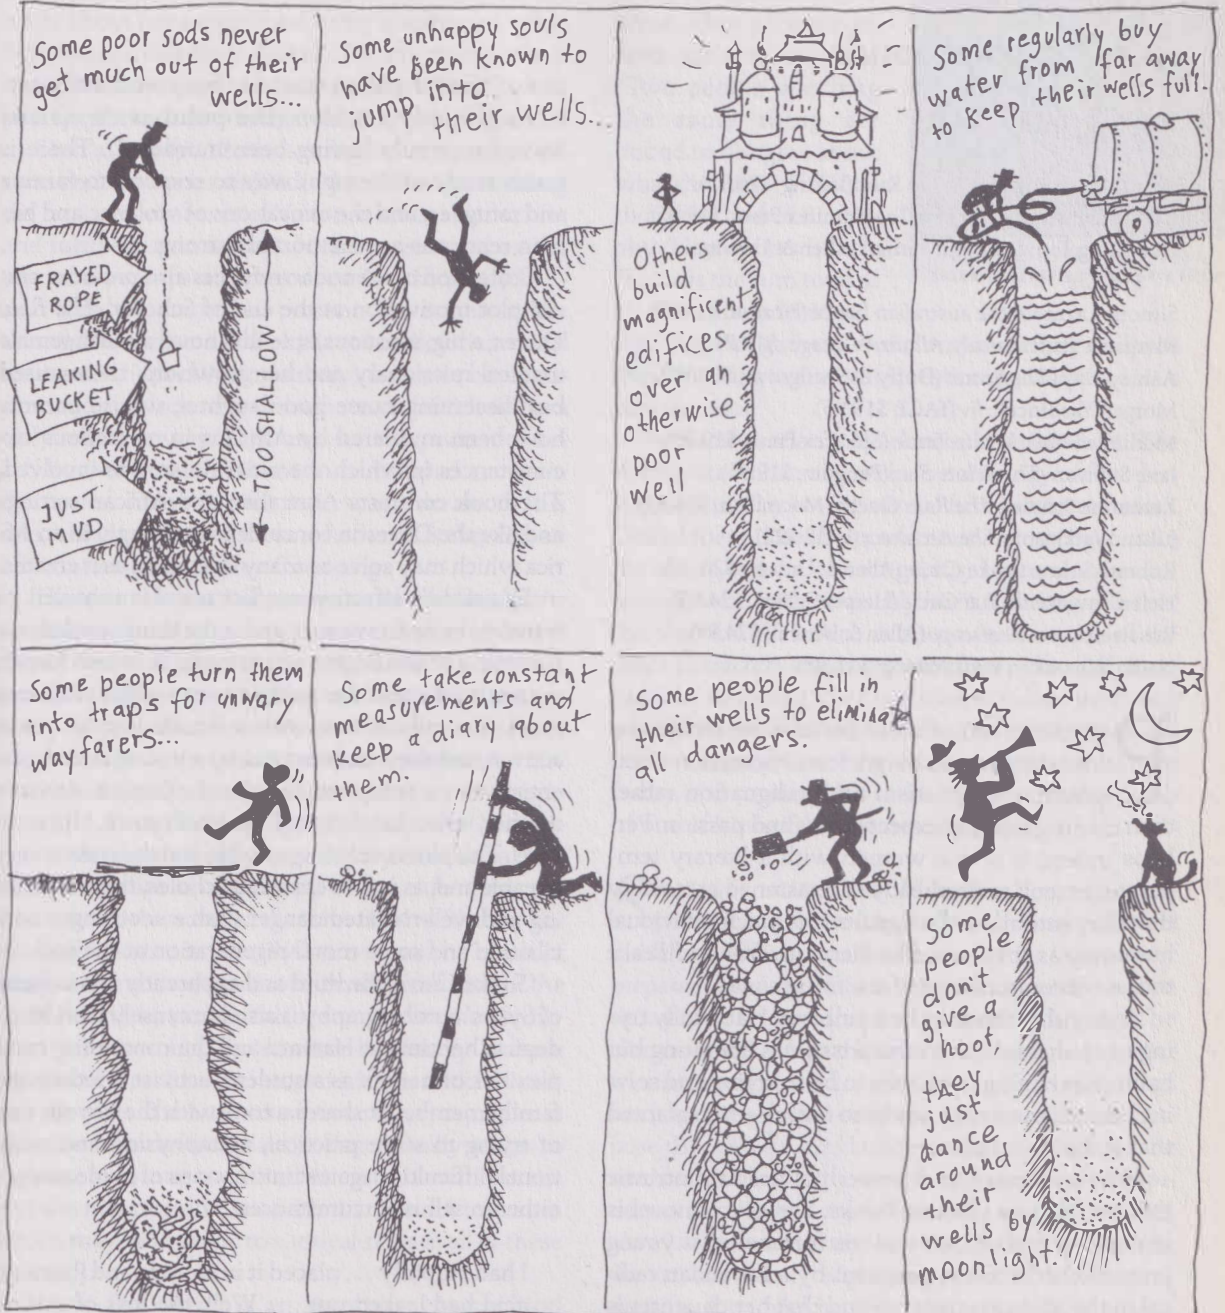 Some poor sods never
get much out of their
wells...
FRAYED
ROPE
LEAKING
BUCKET
JUST
MUD
TOO SHALLOW
Some unhappy souls
have been known to
jump into
their wells...
Others
build
magnificent
edifices
over an
otherwise
poor
well
Some regularly buy
water from far away
to keep their wells full.
Some people turn them
into traps for unwary
wayfarers...
Some take constant
measurements and
keep a diary about
them.
Some people fill in
their wells to eliminate
all dangers.
Some
people
don't
give a
hoot.
they
just
dance
around
their
wells by
moonlight